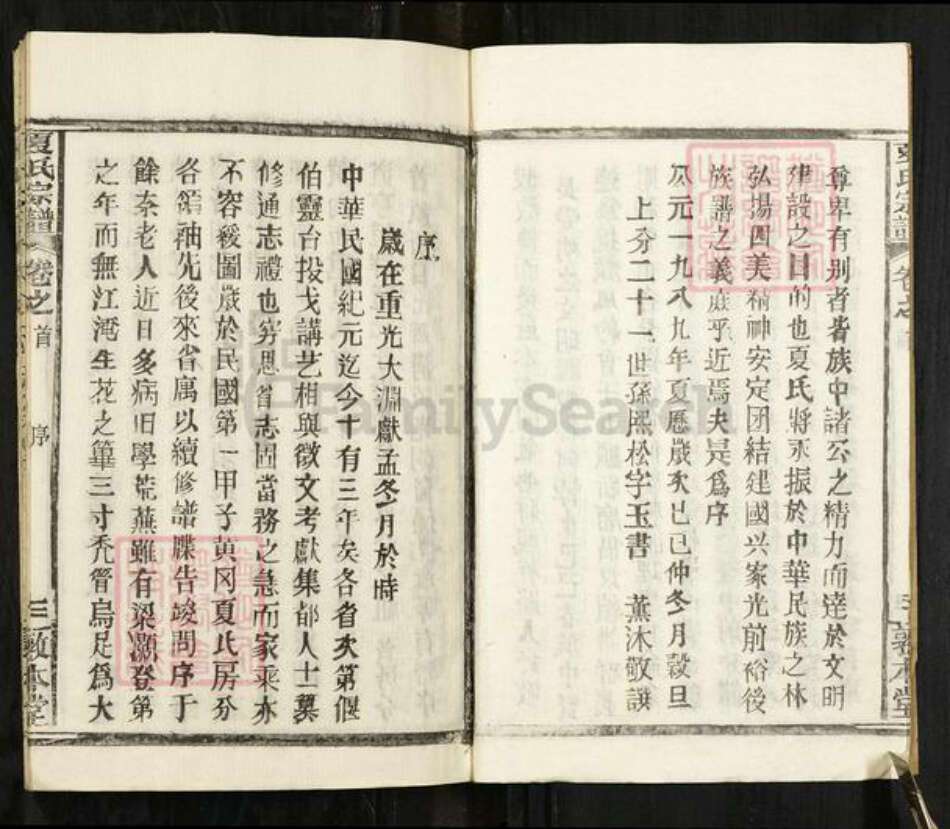 尊卑有别者皆族中諸公之精力而達於文明
建設之目的也夏氏將永振於中華民族之林
弘揚四美精神安定团結建國兴家光前裕後
族譜之義庶乎近焉夫是爲序
公元一九八九年夏歷歲次己巳仲冬月穀旦
上分二十一世孫熙松字玉書 薰沐敬譔
序
歲在重光大淵獻孟冬月於時
中華民國紀元迄今十有三年矣各省次第偃
伯靈台投戈講艺相與徵文考獻集都人士纂
修通志禮也穷思省志固當務之急而家乘亦
不容緩圖歲於民國第一甲子黄冈夏氏房分
各領袖先後來省寓以續修譜牒告竣問序于
餘柰老人近日多病旧學荒蕪雖有梁灝登第
之年而無江淹生花之筆三寸禿管烏足爲大
夏氏宗譜
卷之首
序
三
敦本堂
夏氏宗譜
卷之首
敦本堂
FamilySearch